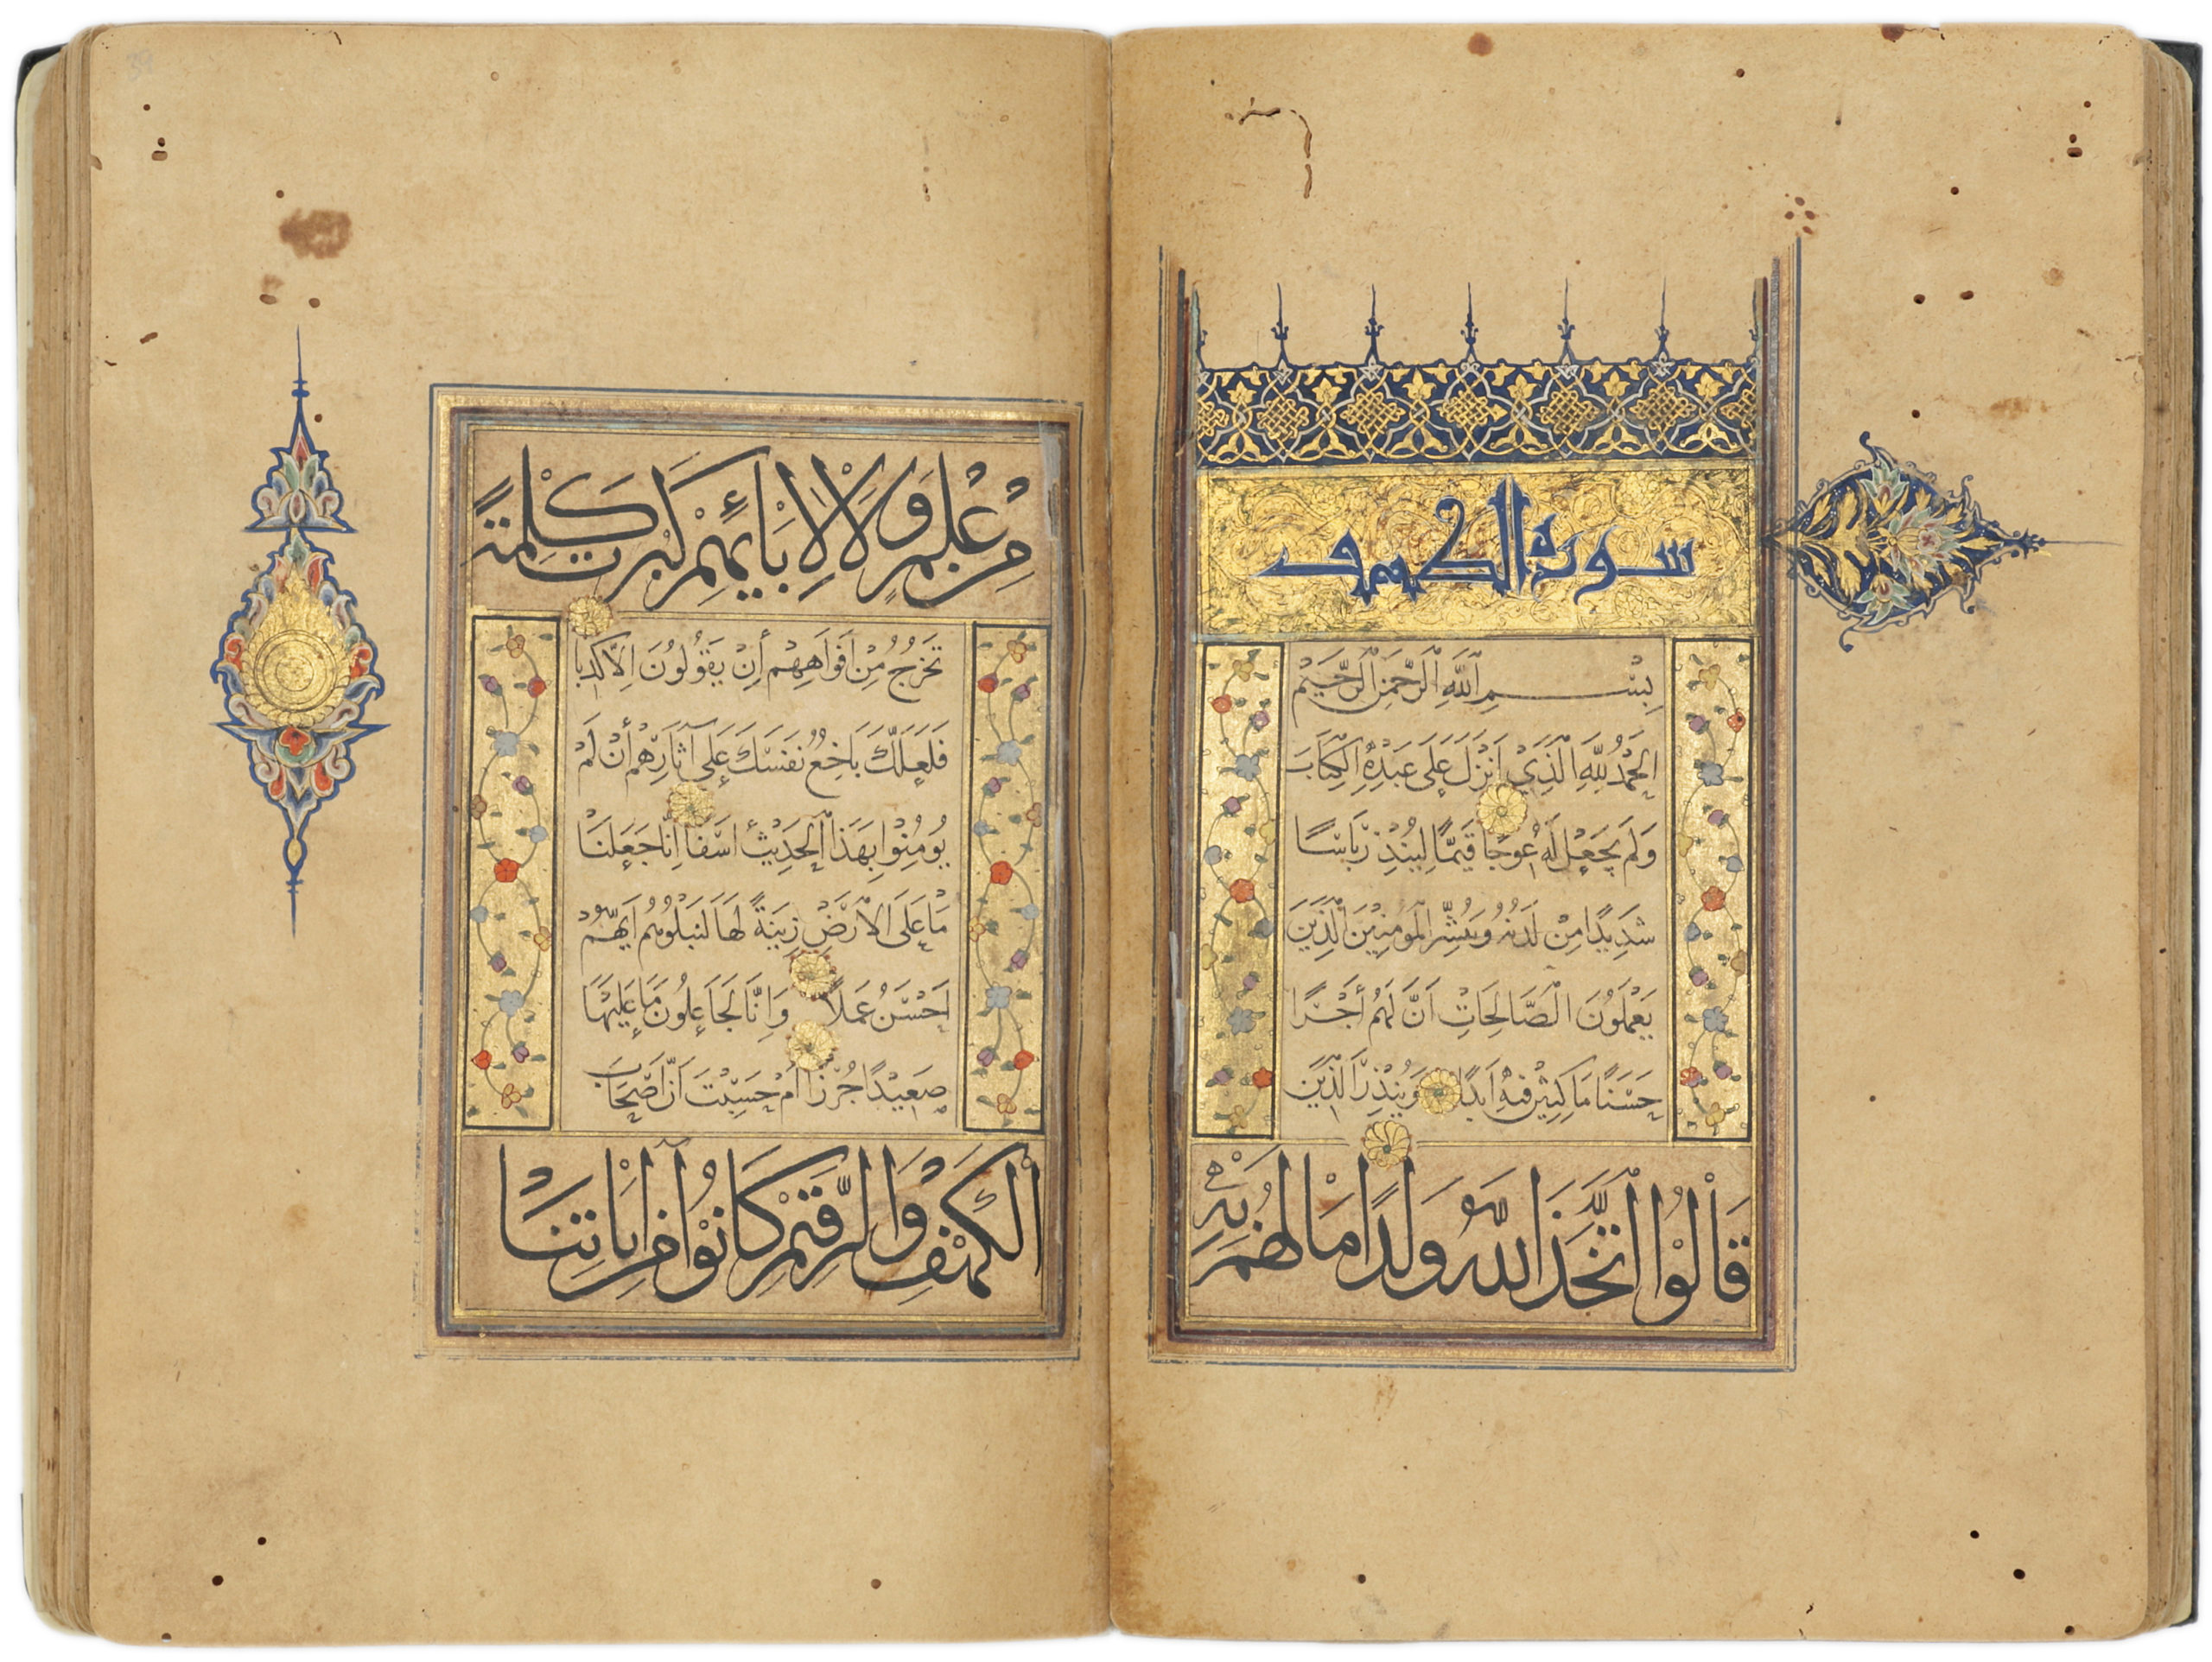 سورة الكهف
بِسْمِ اللَّهِ الرَّحْمَنِ الرَّحِيْمِ
اَلْحَمْدُ لِلَّهِ الَّذِي اَنْزَلَ عَلَى عَبْدِهِ الْكِتَابَ
وَلَمْ يَجْعَلْ لَهُ عِوَجًا قَيِّمًا لِيُنْذِرَ بَاْسًا
شَدِيْدًا مِنْ لَدُنْهُ وَيُبَشِّرَ الْمُؤْمِنِيْنَ الَّذِيْنَ
يَعْمَلُوْنَ الصَّالِحَاتِ اَنَّ لَهُمْ اَجْرًا
حَسَنًا مَاكِثِيْنَ فِيْهِ اَبَدًا وَيُنْذِرَ الَّذِيْنَ
قَالُوْا اتَّخَذَ اللَّهُ وَلَدًا مَا لَهُمْ بِهِ
مِنْ عِلْمٍ وَلَا لِاٰبَائِهِمْ كَبُرَتْ كَلِمَةً
تَخْرُجُ مِنْ اَفْوَاهِهِمْ اِنْ يَقُوْلُوْنَ اِلَّا كَذِبًا
فَلَعَلَّكَ بَاخِعٌ نَفْسَكَ عَلَى آثَارِهِمْ اِنْ لَمْ
يُوْمِنُوْا بِهَذَا الْحَدِيْثِ اَسَفًا اِنَّا جَعَلْنَا
مَا عَلَى الْاَرْضِ زِيْنَةً لَهَا لِنَبْلُوَهُمْ اَيُّهُمْ
اَحْسَنُ عَمَلًا وَاِنَّا لَجَاعِلُوْنَ مَا عَلَيْهَا
صَعِيْدًا جُرُزًا اَمْ حَسِبْتَ اَنَّ اَصْحَابَ
الْكَهْفِ وَالرَّقِيْمِ كَانُوْا مِنْ اٰيَاتِنَا